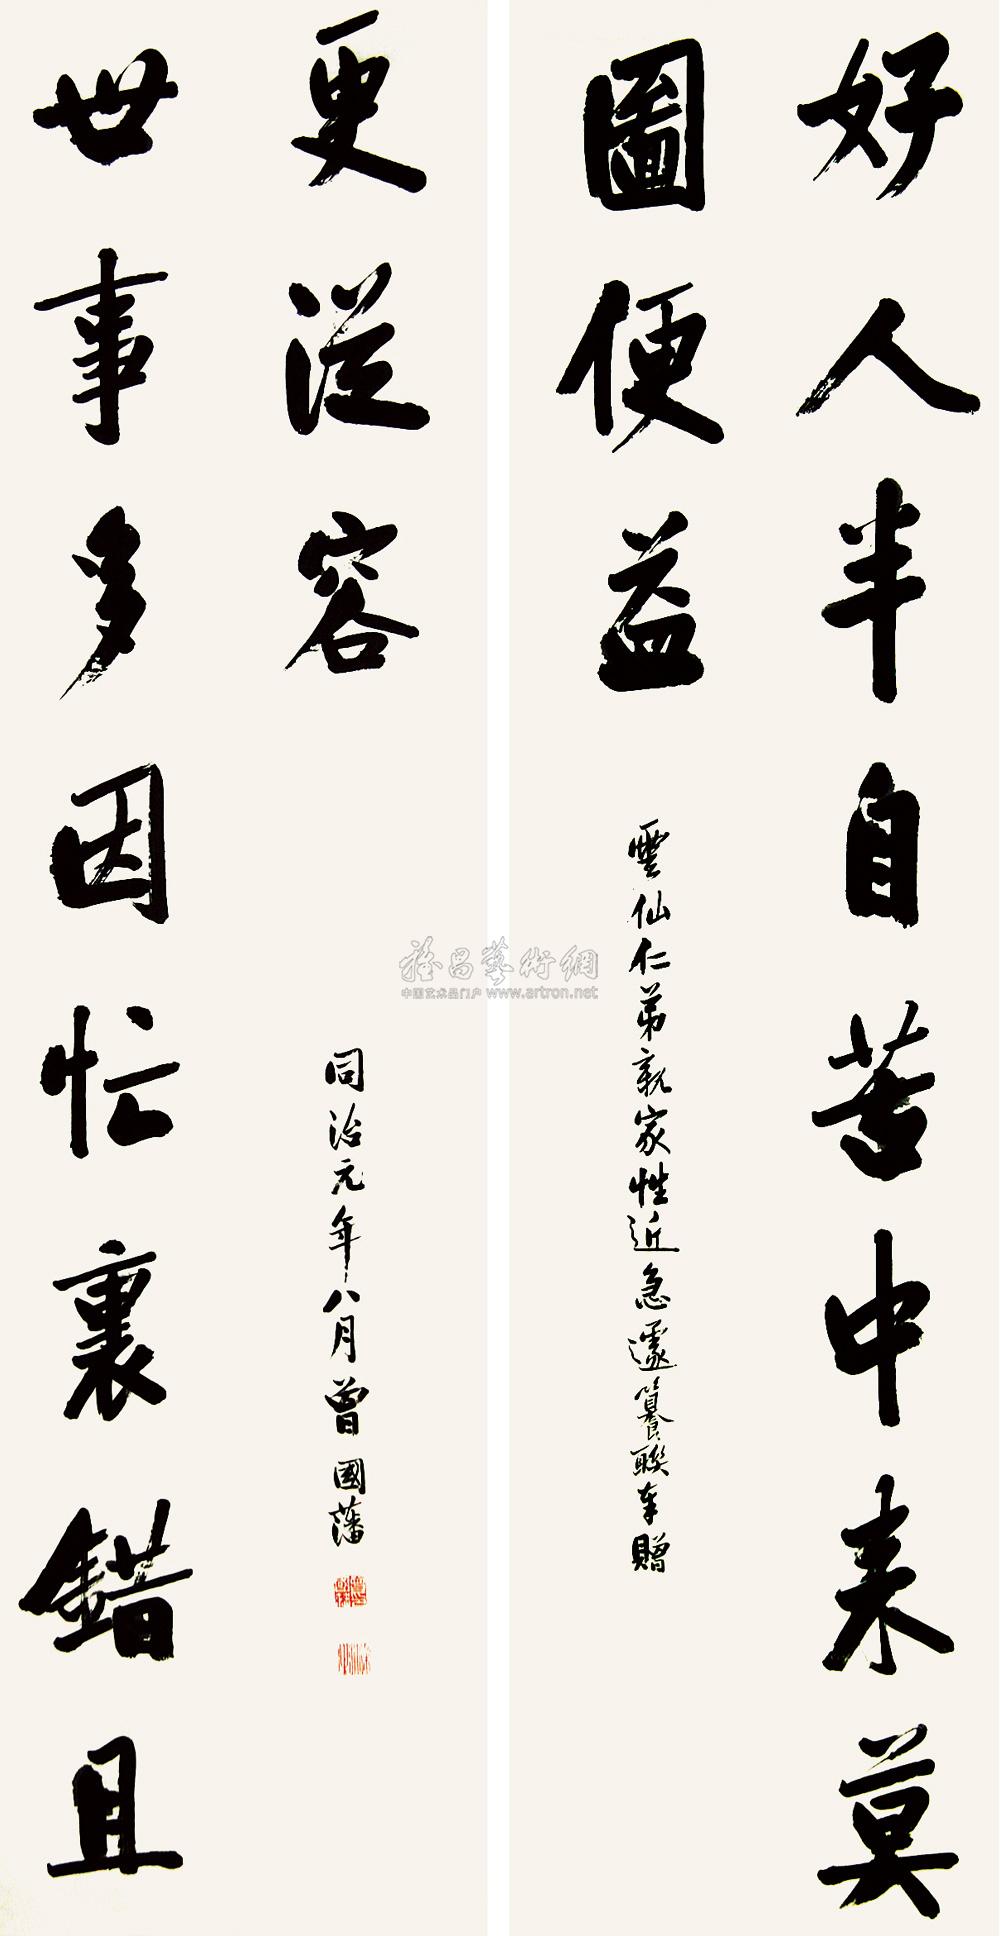 好人半自苦中来莫
圖便益
雲仙仁弟親家性近急遽纂聯奉贈
世事多因忙裏錯且
更從容
同治元年八月曾國藩
雅昌藝術網
中国艺术品门户 www.artron.net